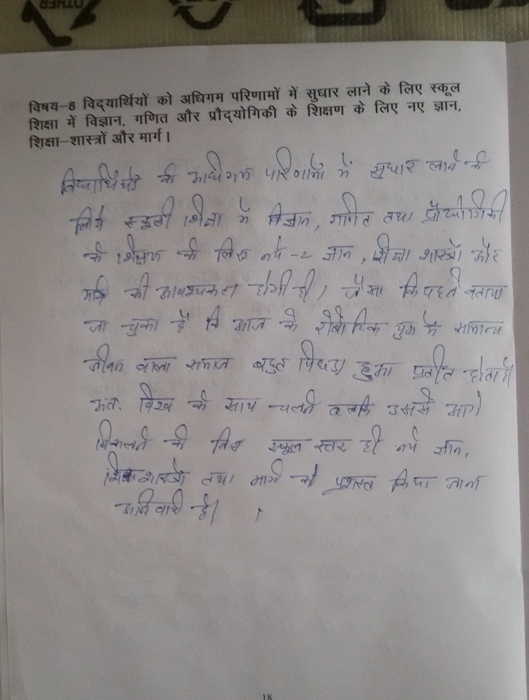 OTHER
विषय–8 विद्यार्थियों को अधिगम परिणामों में सुधार लाने के लिए स्कूल
शिक्षा में विज्ञान, गणित और प्रौद्योगिकी के शिक्षण के लिए नए ज्ञान,
शिक्षा–शास्त्रों और मार्ग।
विद्यार्थियों के अधिगम परिणामों में सुधार लाने के
लिये स्कूली शिक्षा में विज्ञान, गणित तथा प्रौद्योगिकी
के शिक्षण के लिए नये-2 ज्ञान, शिक्षा शास्त्रों और
मार्ग की आवश्यकता होगी ही। जैसा कि पहले बताया
जा चुका है कि आज के रोबोटिक युग में सामान्य
जीवन वाला समाज बहुत पिछड़ा हुआ प्रतीत होता है
अतः विश्व के साथ चलने उससे आगे
निकलने के लिए स्कूल स्तर ही नये ज्ञान,
शिक्षाशास्त्रों तथा मार्ग को प्रशस्त किया जाना
अनिवार्य है।
18